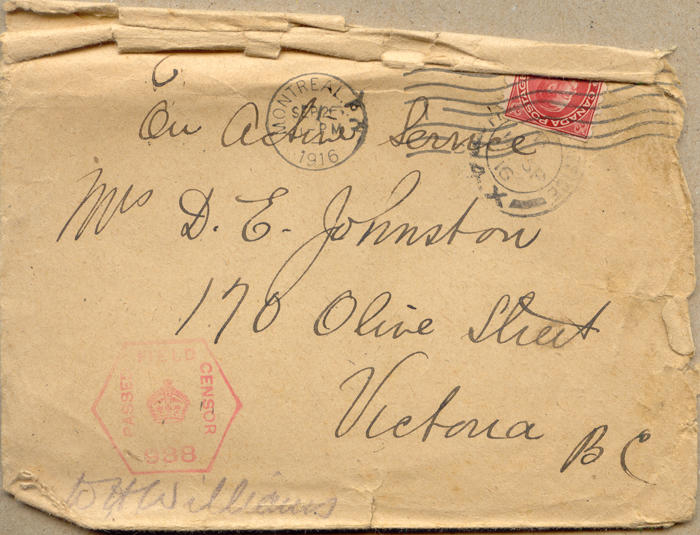 MONTREAL P.Q.
SEP 26
PM
1916
CANADA POSTAGE
16
X
On Active Service
Mrs D. E. Johnston
170 Olive Street
Victoria BC
PASSED FIELD CENSOR
938
W H Williams